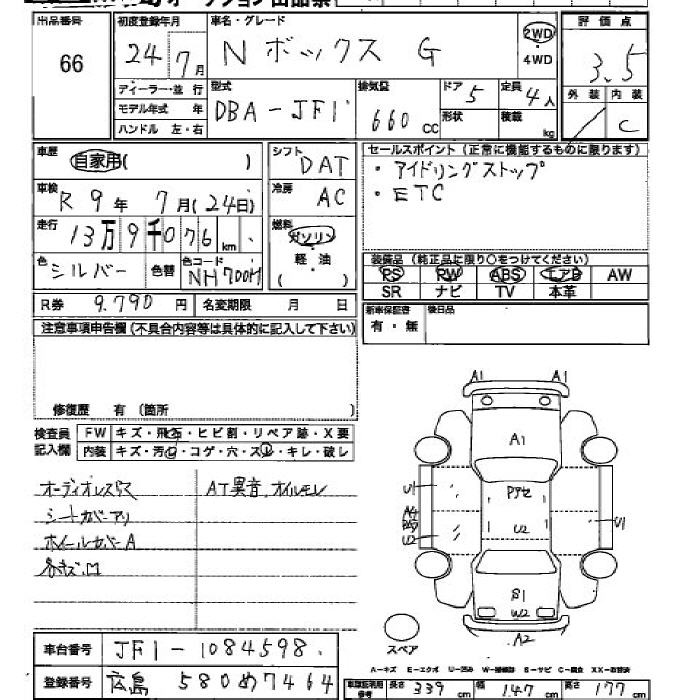 出品番号
66
初度登録年月
24 7月
車名・グレード
N ボックス G
2WD
・
4WD
評価点
3.5
ディーラー・並行
モデル年式 年
ハンドル 左・右
型式
DBA-JF1
排気量
660 cc
ドア 5
形状
定員 4人
積載 kg
外装 内装
/ C
車歴 自家用( )
シフト DAT
車検 R 9年 7月(24日)
冷房 AC
走行 13万9千076km
燃料 ガソリン
・
軽・油
( )
色 シルバー 色替 色コード NH700M
R券 9.790円 名変期限 月 日
セールスポイント(正常に機能するものに限ります)
・アイドリングストップ
・ETC
装備品(純正品に限り○をつけてください)
PS PW ABS エアB AW
SR ナビ TV 本革
新車保証書 後日品
有・無
注意事項申告欄(不具合内容等は具体的に記入して下さい)
修復歴 有(箇所 )
検査員 FW キズ・飛石・ヒビ割・リペア跡・X要
記入欄 内装 キズ・汚レ・コゲ・穴・スレ・キレ・破レ
オーディオレス AT異音、オイルモレ
シートカバーアリ
ホイルカバーA
A1 A1
A1
U1
U2
U2
U1
S1
W2
A2
スペア
A-キズ E-エクボ U-凹み W-補修跡 S-サビ C-腐食 XX-交換済
車台番号 JF1-1084598
登録番号 広島 580 め 7464
車庫証明用
参考
長さ 339cm 幅 147cm 高さ 177cm